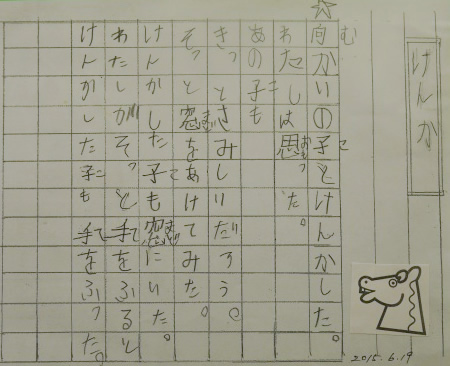 けんか
☆向かいの子とけんかした。
わたしは思った。
あの子も
きっとさみしいだろう。
そっと窓をあけてみたら。
けんかした子も窓にいた。
わたしがそっと手をふると、
けんかした子も手をふった。
2015.6.19